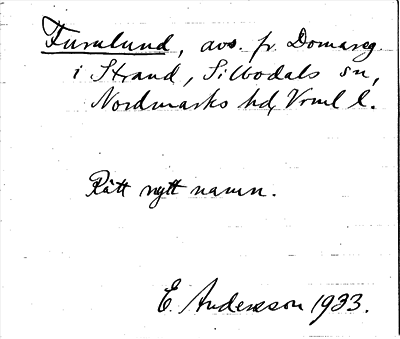 Furulund, avs. fr. Domareg.
i Strand, Silbodals sn,
Nordmarks hd, Vrml l.
Rätt nytt namn.
E. Andersson 1933.